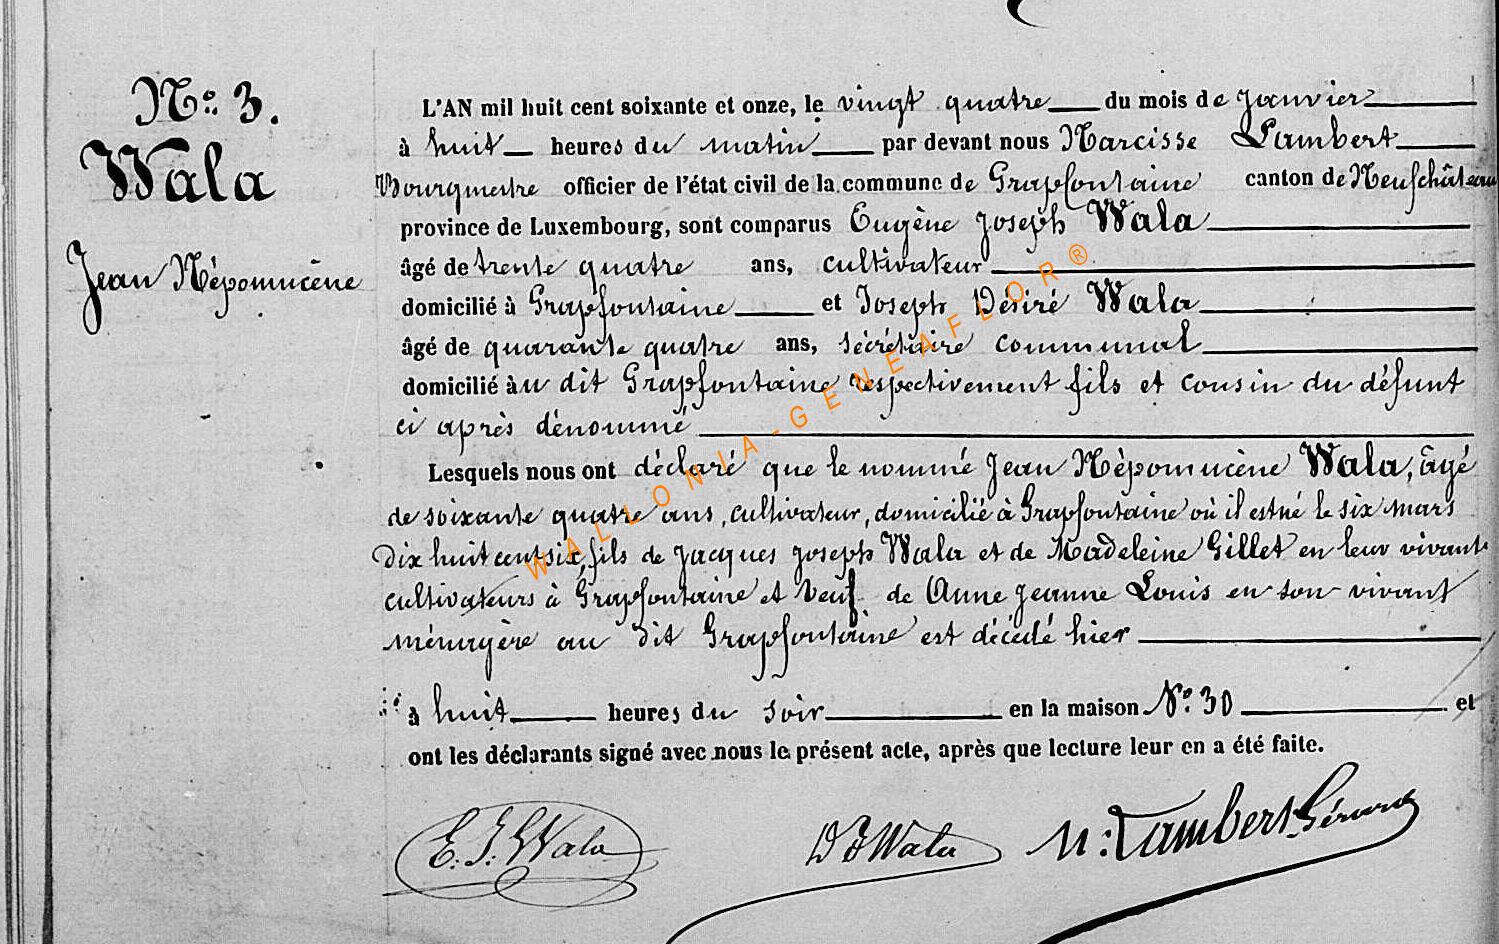 N° 3.
Wala
Jean Népomucène
L'AN mil huit cent soixante et onze, le vingt quatre du mois de Janvier
à huit heures du matin par devant nous Narcisse Lambert
Bourgmestre officier de l'état civil de la commune de Grapfontaine canton de Neufchâteau
province de Luxembourg, sont comparus Eugène Joseph Wala
âgé de trente quatre ans, cultivateur
domicilié à Grapfontaine et Joseph Désiré Wala
âgé de quarante quatre ans, sécrétaire communal
domicilié àu dit Grapfontaine respectivement fils et cousin du défunt
ci après dénommé
Lesquels nous ont déclaré que le nommé Jean Népomucène Wala, âgé
de soixante quatre ans, cultivateur, domicilié à Grapfontaine où il est né le six mars
dix huit cent six, fils de Jacques Joseph Wala et de Madeleine Gillet en leur vivant
cultivateurs à Grapfontaine et Veuf de Anne Jeanne Louis en son vivant
ménagère au dit Grapfontaine est décédé hier
à huit heures du soir en la maison N° 30 et
ont les déclarants signé avec nous le présent acte, après que lecture leur en a été faite.
E. J. Wala DJ Wala N: Lambert Gérard
WALLONIA-GENEAFLOR®